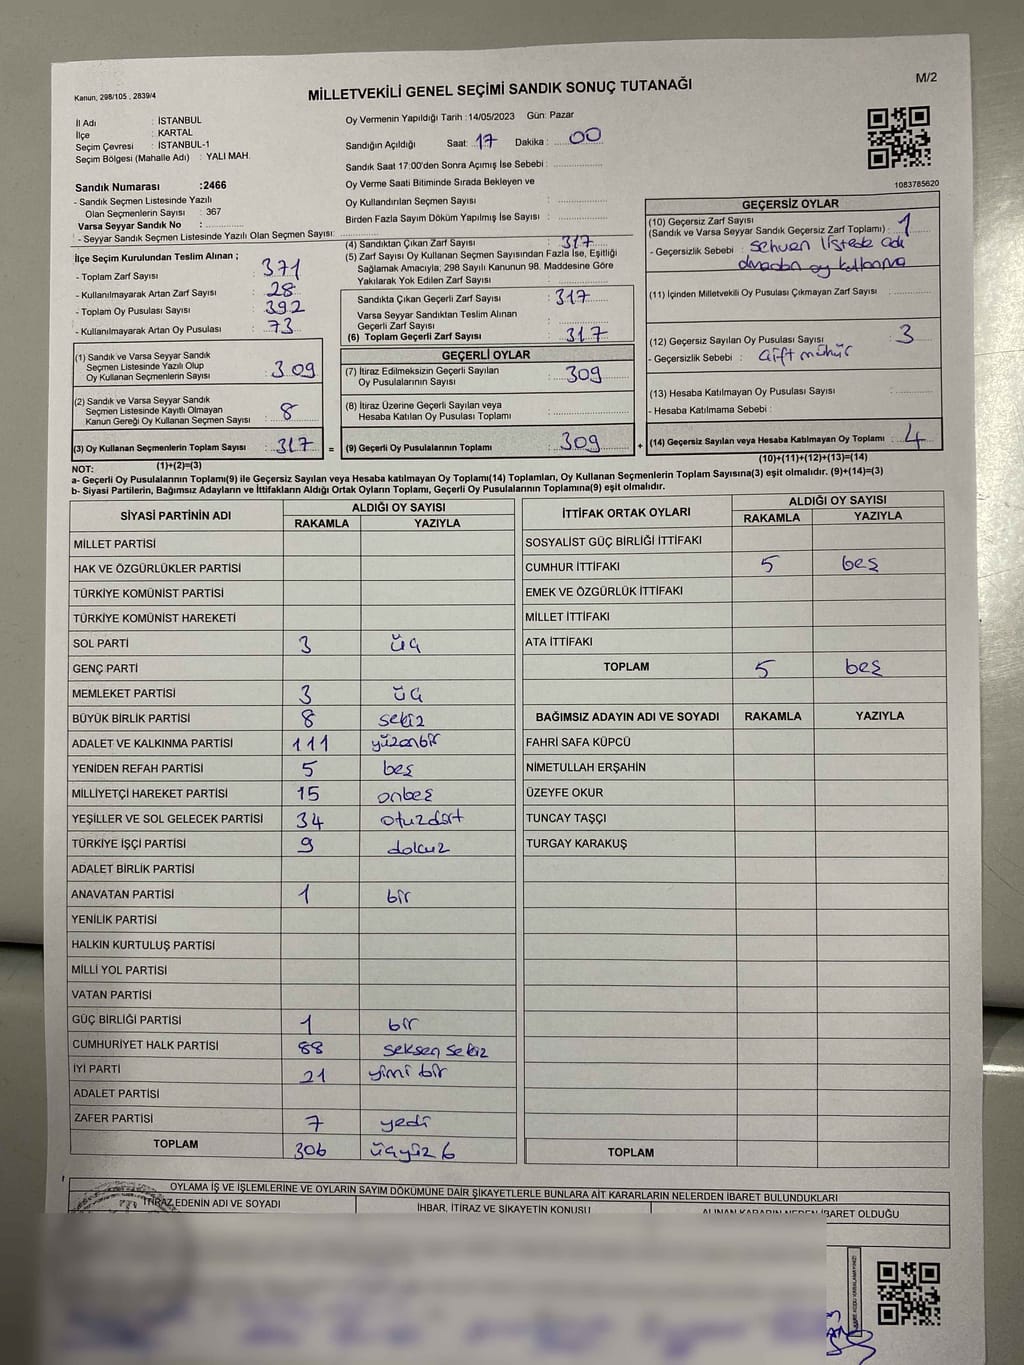 Kanun, 298/105 , 2839/4
MİLLETVEKİLİ GENEL SEÇİMİ SANDIK SONUÇ TUTANAĞI
M/2
İl Adı : İSTANBUL
İlçe : KARTAL
Seçim Çevresi : İSTANBUL-1
Seçim Bölgesi (Mahalle Adı) : YALI MAH.
Sandık Numarası :2466
- Sandık Seçmen Listesinde Yazılı
Olan Seçmenlerin Sayısı : 367
Varsa Seyyar Sandık No :
- Seyyar Sandık Seçmen Listesinde Yazılı Olan Seçmen Sayısı:
Oy Vermenin Yapıldığı Tarih :14/05/2023 Gün: Pazar
Sandığın Açıldığı Saat: 17 Dakika : 00
Sandık Saat 17:00'den Sonra Açımış İse Sebebi :
Oy Verme Saati Bitiminde Sırada Bekleyen ve
Oy Kullandırılan Seçmen Sayısı :
Birden Fazla Sayım Döküm Yapılmış İse Sayısı :
1083785620
İlçe Seçim Kurulundan Teslim Alınan ;
- Toplam Zarf Sayısı : 371
- Kullanılmayarak Artan Zarf Sayısı : 28
- Toplam Oy Pusulası Sayısı : 392
- Kullanılmayarak Artan Oy Pusulası : 73
(1) Sandık ve Varsa Seyyar Sandık
Seçmen Listesinde Yazılı Olup
Oy Kullanan Seçmenlerin Sayısı : 309
(2) Sandık ve Varsa Seyyar Sandık
Seçmen Listesinde Kayıtlı Olmayan
Kanun Gereği Oy Kullanan Seçmen Sayısı : 8
(3) Oy Kullanan Seçmenlerin Toplam Sayısı : 317 =
(1)+(2)=(3)
(4) Sandıktan Çıkan Zarf Sayısı : 317
(5) Zarf Sayısı Oy Kullanan Seçmen Sayısından Fazla İse, Eşitliği
Sağlamak Amacıyla, 298 Sayılı Kanunun 98. Maddesine Göre
Yakılarak Yok Edilen Zarf Sayısı :
Sandıkta Çıkan Geçerli Zarf Sayısı : 317
Varsa Seyyar Sandıktan Teslim Alınan
Geçerli Zarf Sayısı :
(6) Toplam Geçerli Zarf Sayısı : 317
GEÇERLİ OYLAR
(7) İtiraz Edilmeksizin Geçerli Sayılan
Oy Pusulalarının Sayısı : 309
(8) İtiraz Üzerine Geçerli Sayılan veya
Hesaba Katılan Oy Pusulası Toplamı :
(9) Geçerli Oy Pusulalarının Toplamı : 309 +
GEÇERSİZ OYLAR
(10) Geçersiz Zarf Sayısı
(Sandık ve Varsa Seyyar Sandık Geçersiz Zarf Toplamı) : 1
- Geçersizlik Sebebi : sehven listede adı
olmadan oy kullanma
(11) İçinden Milletvekili Oy Pusulası Çıkmayan Zarf Sayısı :
(12) Geçersiz Sayılan Oy Pusulası Sayısı : 3
- Geçersizlik Sebebi : Çift mühür
(13) Hesaba Katılmayan Oy Pusulası Sayısı :
- Hesaba Katılmama Sebebi :
(14) Geçersiz Sayılan veya Hesaba Katılmayan Oy Toplamı : 4
(10)+(11)+(12)+(13)=(14)
NOT:
a- Geçerli Oy Pusulalarının Toplamı(9) ile Geçersiz Sayılan veya Hesaba katılmayan Oy Toplamı(14) Toplamları, Oy Kullanan Seçmenlerin Toplam Sayısına(3) eşit olmalıdır. (9)+(14)=(3)
b- Siyasi Partilerin, Bağımsız Adayların ve İttifakların Aldığı Ortak Oyların Toplamı, Geçerli Oy Pusulalarının Toplamına(9) eşit olmalıdır.
SİYASİ PARTİNİN ADI ALDIĞI OY SAYISI
RAKAMLA YAZIYLA
MİLLET PARTİSİ
HAK VE ÖZGÜRLÜKLER PARTİSİ
TÜRKİYE KOMÜNİST PARTİSİ
TÜRKİYE KOMÜNİST HAREKETİ
SOL PARTİ 3 üç
GENÇ PARTİ
MEMLEKET PARTİSİ 3 üç
BÜYÜK BİRLİK PARTİSİ 8 sekiz
ADALET VE KALKINMA PARTİSİ 111 yüzonbir
YENİDEN REFAH PARTİSİ 5 beş
MİLLİYETÇİ HAREKET PARTİSİ 15 onbeş
YEŞİLLER VE SOL GELECEK PARTİSİ 34 otuzdört
TÜRKİYE İŞÇİ PARTİSİ 9 dokuz
ADALET BİRLİK PARTİSİ
ANAVATAN PARTİSİ 1 bir
YENİLİK PARTİSİ
HALKIN KURTULUŞ PARTİSİ
MİLLİ YOL PARTİSİ
VATAN PARTİSİ
GÜÇ BİRLİĞİ PARTİSİ 1 bir
CUMHURİYET HALK PARTİSİ 88 seksen sekiz
İYİ PARTİ 21 yimi bir
ADALET PARTİSİ
ZAFER PARTİSİ 7 yedi
TOPLAM 306 üçyüz 6
İTTİFAK ORTAK OYLARI ALDIĞI OY SAYISI
RAKAMLA YAZIYLA
SOSYALİST GÜÇ BİRLİĞİ İTTİFAKI
CUMHUR İTTİFAKI 5 beş
EMEK VE ÖZGÜRLÜK İTTİFAKI
MİLLET İTTİFAKI
ATA İTTİFAKI
TOPLAM 5 beş
BAĞIMSIZ ADAYIN ADI VE SOYADI RAKAMLA YAZIYLA
FAHRİ SAFA KÜPCÜ
NİMETULLAH ERŞAHİN
ÜZEYFE OKUR
TUNCAY TAŞÇI
TURGAY KARAKUŞ
TOPLAM
OYLAMA İŞ VE İŞLEMLERİNE VE OYLARIN SAYIM DÖKÜMÜNE DAİR ŞİKAYETLERLE BUNLARA AİT KARARLARIN NELERDEN İBARET BULUNDUKLARI
İTİRAZ EDENİN ADI VE SOYADI İHBAR, İTİRAZ VE ŞİKAYETİN KONUSU ALINAN KARARIN NEDEN İBARET OLDUĞU